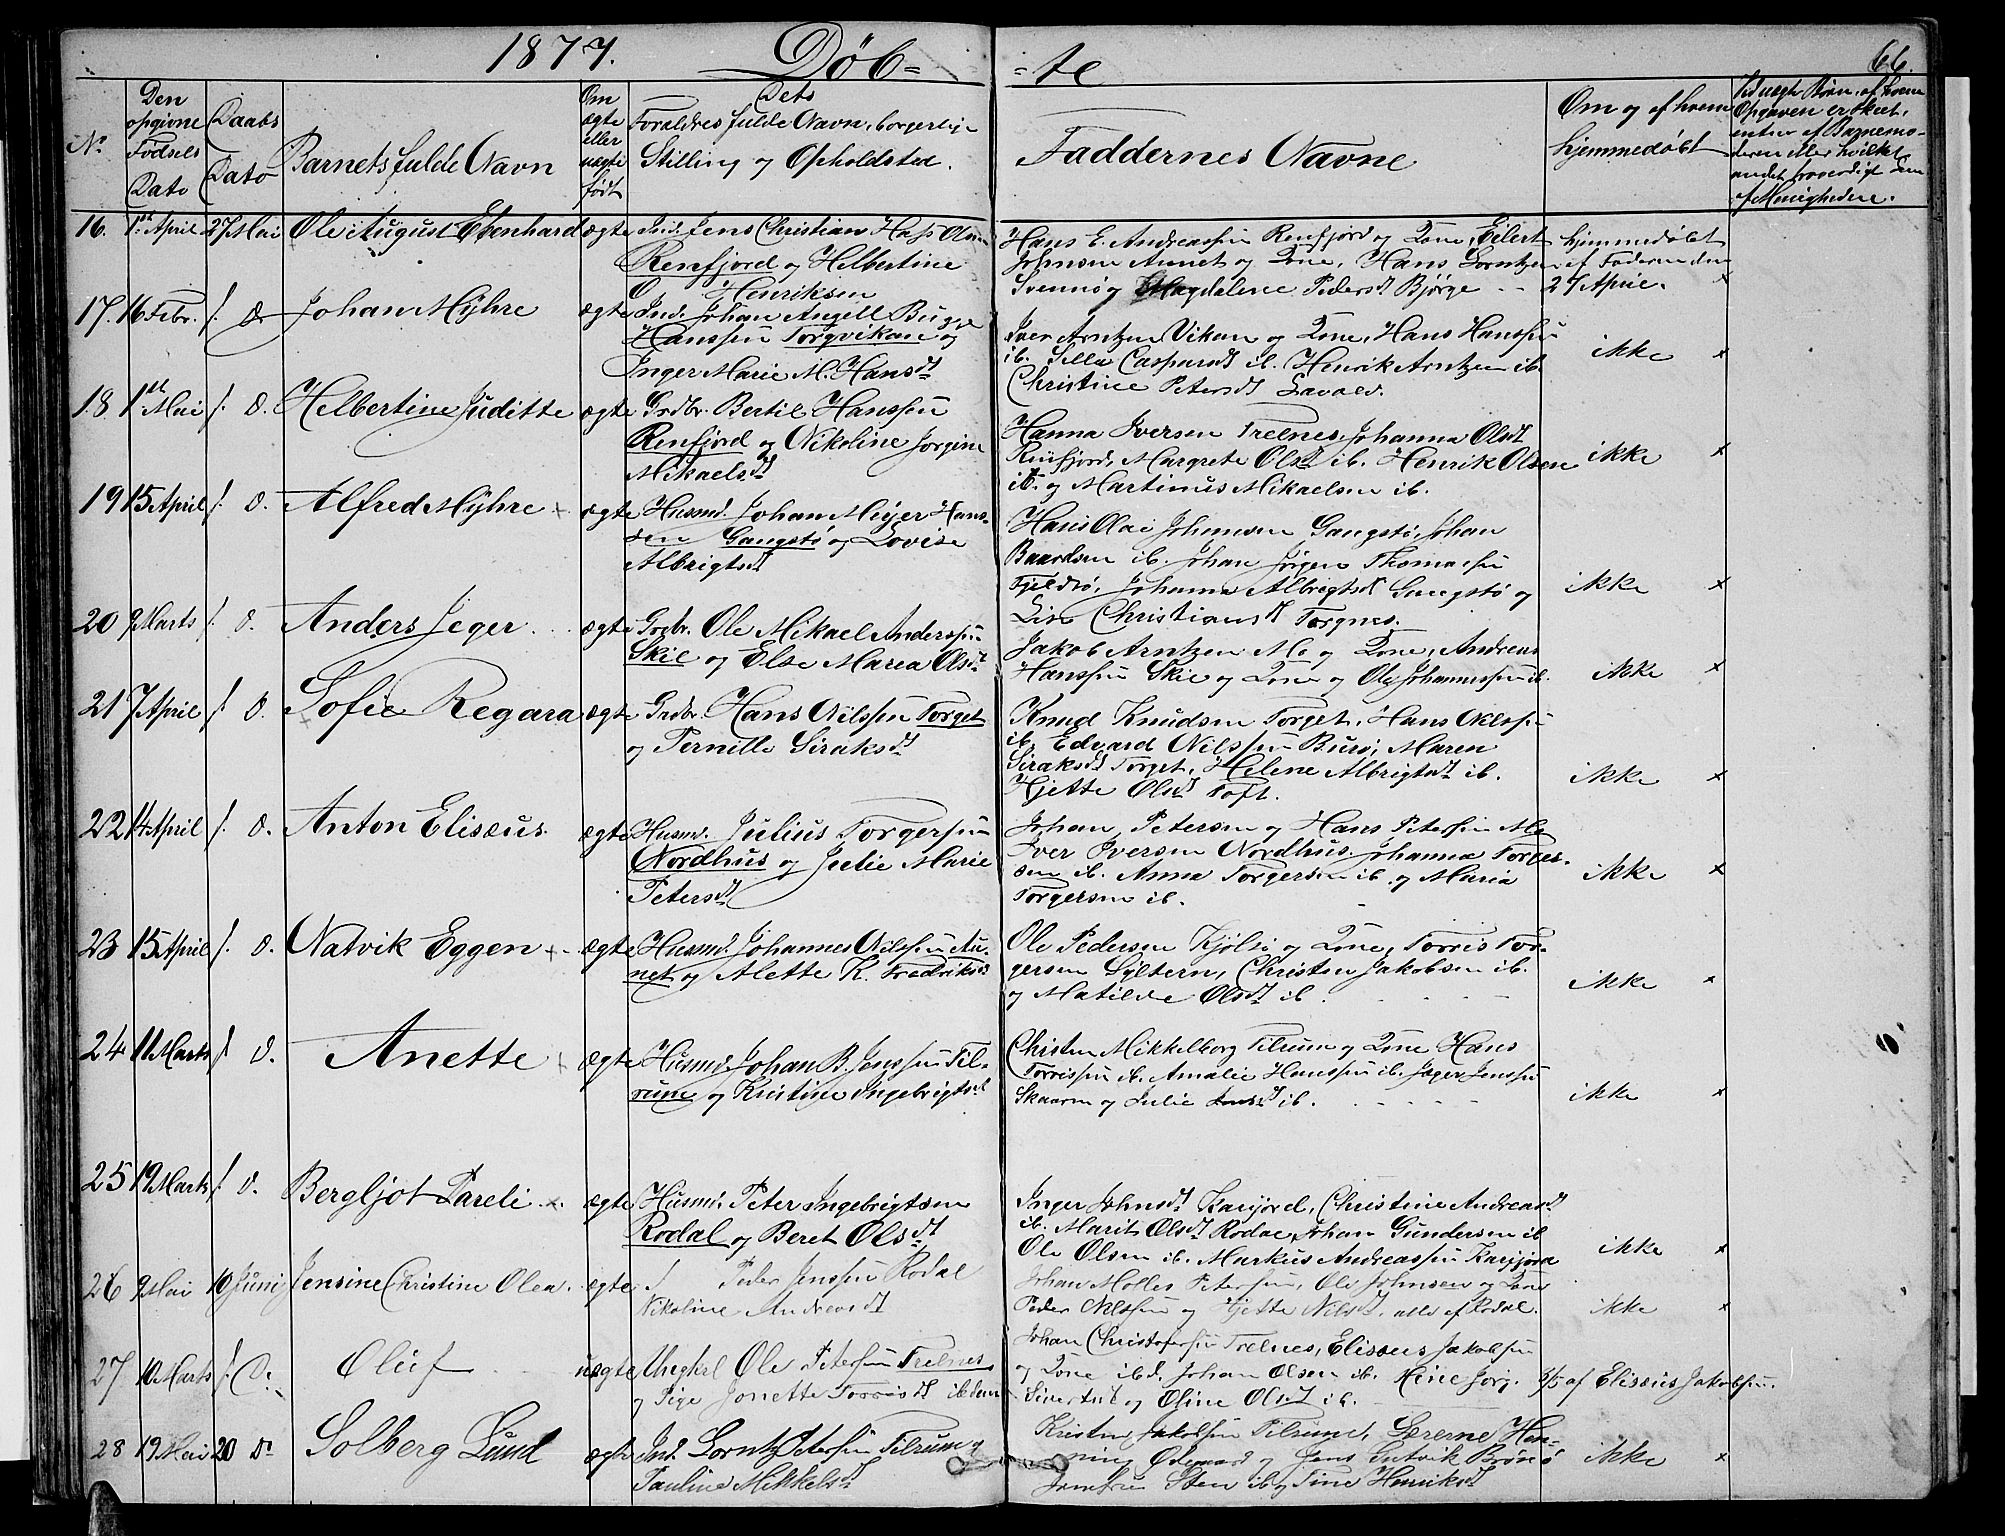 1877. Døb=
-te
66.
No
Den opgivne Fødsels Dato
Daabs Dato
Barnets fulde Navn
Om ægte eller uægte født
Dets Forældres fulde Navn, borgerlige Stilling og Opholdsted.
Faddernes Navne
Om og af hvem hjemmedøbt
Ved uægte Børn, af hvem Opgaven er skeet, enten af Barnemoderen eller hvilket andet
16. 1st April 27 Mai Ole August Ebenhard ægte Ind. Jens Christian Hass Olsen
Renfjord og Helbertine
Henriksen
Hans E. Andreassen Renfjord og Kone, Eilert hjemmedøbt
Johnsen Aunet og Kone, Hans Lorntzen af Faderen den
Svennø og Magdalene Pedersdt Bjørge -- 27 April. x
17. 16 Febr. /. D. Johan Myhre ægte Ind. Johan Angell Bugge
Hanssen Torgvikan og
Inger Marie M. Hansdt
Iver Arntzen Vikan og Kone, Hans Hanssen
ib. Silla Caspersdt ib. Henrik Arntzen ib.
Christine Petersdt Savold.
ikke x
18. 1st Mai /. D. Helbertine Juditte ægte Grdbr. Bertil Hanssen
Renfjord og Nikoline Jorgine
Mikaelsdt
Hanna Iversen Trelnes, Johanna Olsdt
Renfjord, Margrete Olsdt ib. Henrik Olsen
ib. og Martinus Mikaelsen ib.
ikke x
19 15 April /. D. Alfred Myhre ægte Husmd. Johan Meyer Hans-
sen Gangstø og Lovise
Albrigtsdt
Hans Olai Johansen Gangstø, Johan
Baardsen ib. Johan Jørgen Thomassen
Fjeldrø, Johanna Albregtsdt Gangstø og
Lise Christiansdt Torgnes.
ikke x
20 9 Marts /. D. Anders Jeger ægte Grdbr. Ole Mikael Anderssen
Skie og Else Marea Olsdt
Jakob Arntzen Mo og Kone, Andreas
Hanssen Skie og Kone og Ole Johannessen ib.
ikke x
21 7 April /. D. Sofie Regara ægte Grdbr. Hans Nilssen Torget
og Pernille Siraksdt
Knud Knudsen Torget, Hans Nilssen
ib. Edvard Nilssen Burø, Maren
Siraksdt Torget, Helene Albrigtsdt ib.
Hjette Olsdt Toft.
ikke x
22 14 April /. D. Anton Elisæus. ægte Husmd. Julius Torgersen
Nordhus og Julie Marie
Petersdt
Johan Petersen og Hans Petersen Mo
Iver Iversen Nordhus. Johanna Torger-
sen ib. Anna Torgersen ib. og Maria
Torgersen ib.
ikke x
23 15 April /. D. Natvik Eggen ægte Husmd. Johannes Nilssen Au-
net og Alette K. Fredriksd.
Ole Pedersen Kjølsø og Kone, Torris Tor-
gersen Syltern, Christen Jakobsen ib.
og Matilde Olsdt ib.
ikke x
24 11 Marts /. D. Anette ægte Husmd. Johan B. Jenssen Til-
rum og Kristine Ingebrigtsdt
Christen Mikkelborg Tilrum og Kone Hans
Torrissen ib. Amalie Hanssen ib. Jæger Jenssen
Skaaren og Julie ib.
ikke x
25 19 Marts /. D. Bergljot Pareli ægte Husmd. Peter Ingebrigtsen
Rodal og Beret Olsdt
Inger Johnsdt Karijord, Christine Andreasdt
ib. Marit Olsdt Rodal, Johan Gundersen ib
Ole Olsen ib. Markus Andreassen Karijord
ikke x
26 9 Mai 10 Juni Jensine Christine Olea. ægte Peder Jenssen Rodal
Nikoline Andreasdt
Johan Møller Petersen, Ole Johnsen og Kone
Peder Nilssen og Hjette Nilsdt, alle af Rodal.
ikke x
27 10 Marts /. D. Oluf uægte Ungkrl Ole Petersen Trelnes
og Pige Jonette Torrisdt ibdem
Johan Christofersen Trelnes, Elisæus Jakobsen
og Kone ibd. Johan Olsen ib. Kine Jørg. 3/5 af Elisæus Jakobsen.
Sivertsdt og Oline Olsdt ib.
28 19 Mai 20 Do Solberg Lund ægte Ind. Lorntz Petersen Tilrum og
Pauline Mikkelsdt
Kristen Jakobsen Tilrum, Lærerne Hen-
ning Ødegaard og Jens Entvik Brønø
Jomfru Steen ib. og Tine Henriksdt
ikke x